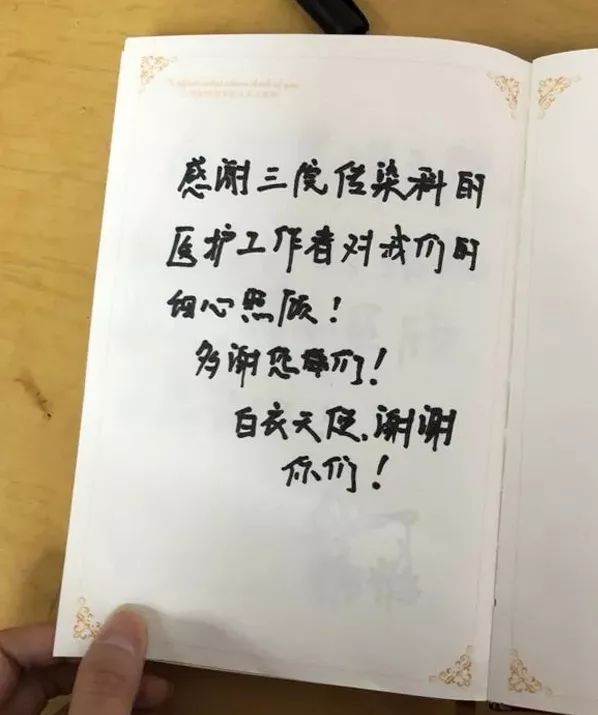 感谢三院传染科的
医护工作者对我们的
细心照顾！
多谢您们！
白衣天使,谢谢
你们！